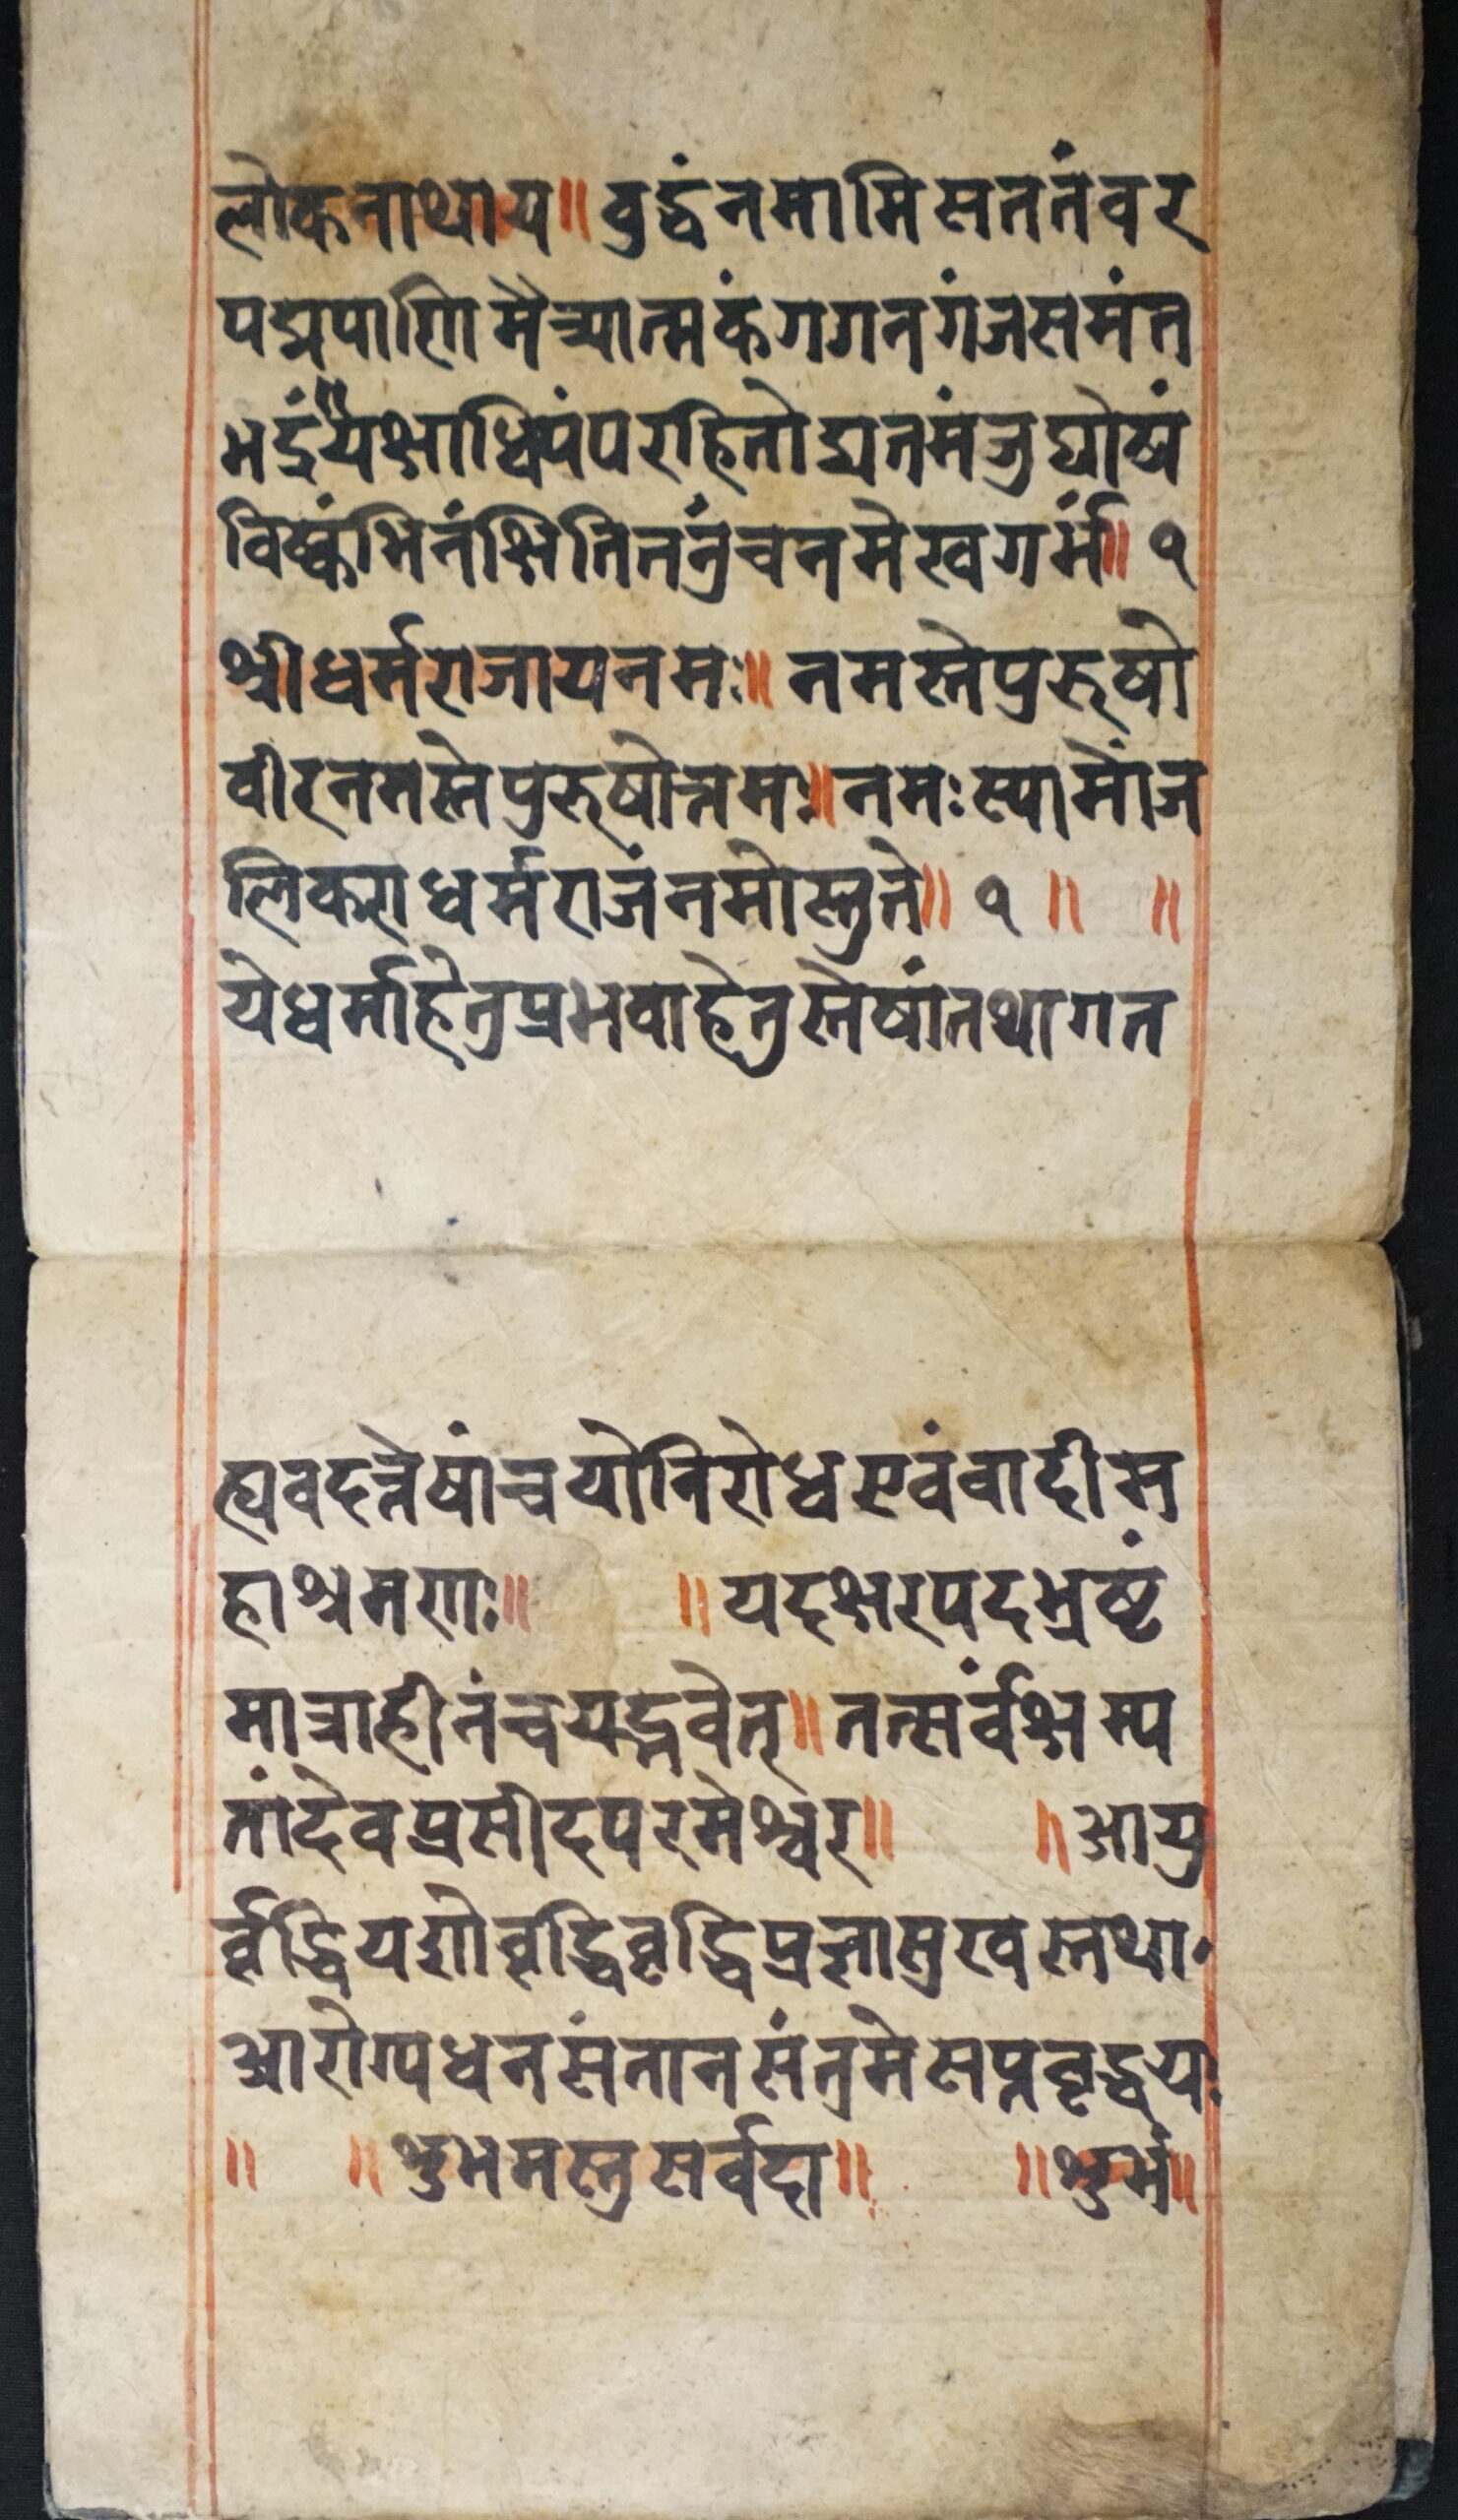 लोकनाथाय॥ वुद्धंनमामिसततंवर
पद्मपाणिमैत्र्यात्मकंगगनगंजसमंत
भद्रंयैक्षाधिपंपरहितोद्यतमंजुघोषं
विष्कंभिनंक्षितितनंचतमेखगर्भं॥ १
श्रीधर्मराजायनमः॥ नमस्तेपुरूषो
वीरनमस्तेपुरूषोत्तमः॥नमःस्यामांज
लिकराधर्मराजंनमोस्तुते॥ १ ॥ ॥
येधर्माहेतुप्रभवाहेतुस्तेषांतथागत
ह्यवदत्तेषांचयोनिरोधएवंवादीम
हाश्रमणः॥ ॥यदक्षरपदभ्रष्टं
मात्राहीनंचयद्भवेत्॥तत्सर्वंक्षम्य
तांदेवप्रसीदपरमेश्वर॥ ॥आयु
र्वृद्धियशोवृद्धिवृद्धिप्रज्ञासुखस्तथा
आरोग्यधनसंतानसंतुमेसप्तवृद्धयः
॥ ॥शुभमस्तुसर्वदा॥ ॥शुभं॥